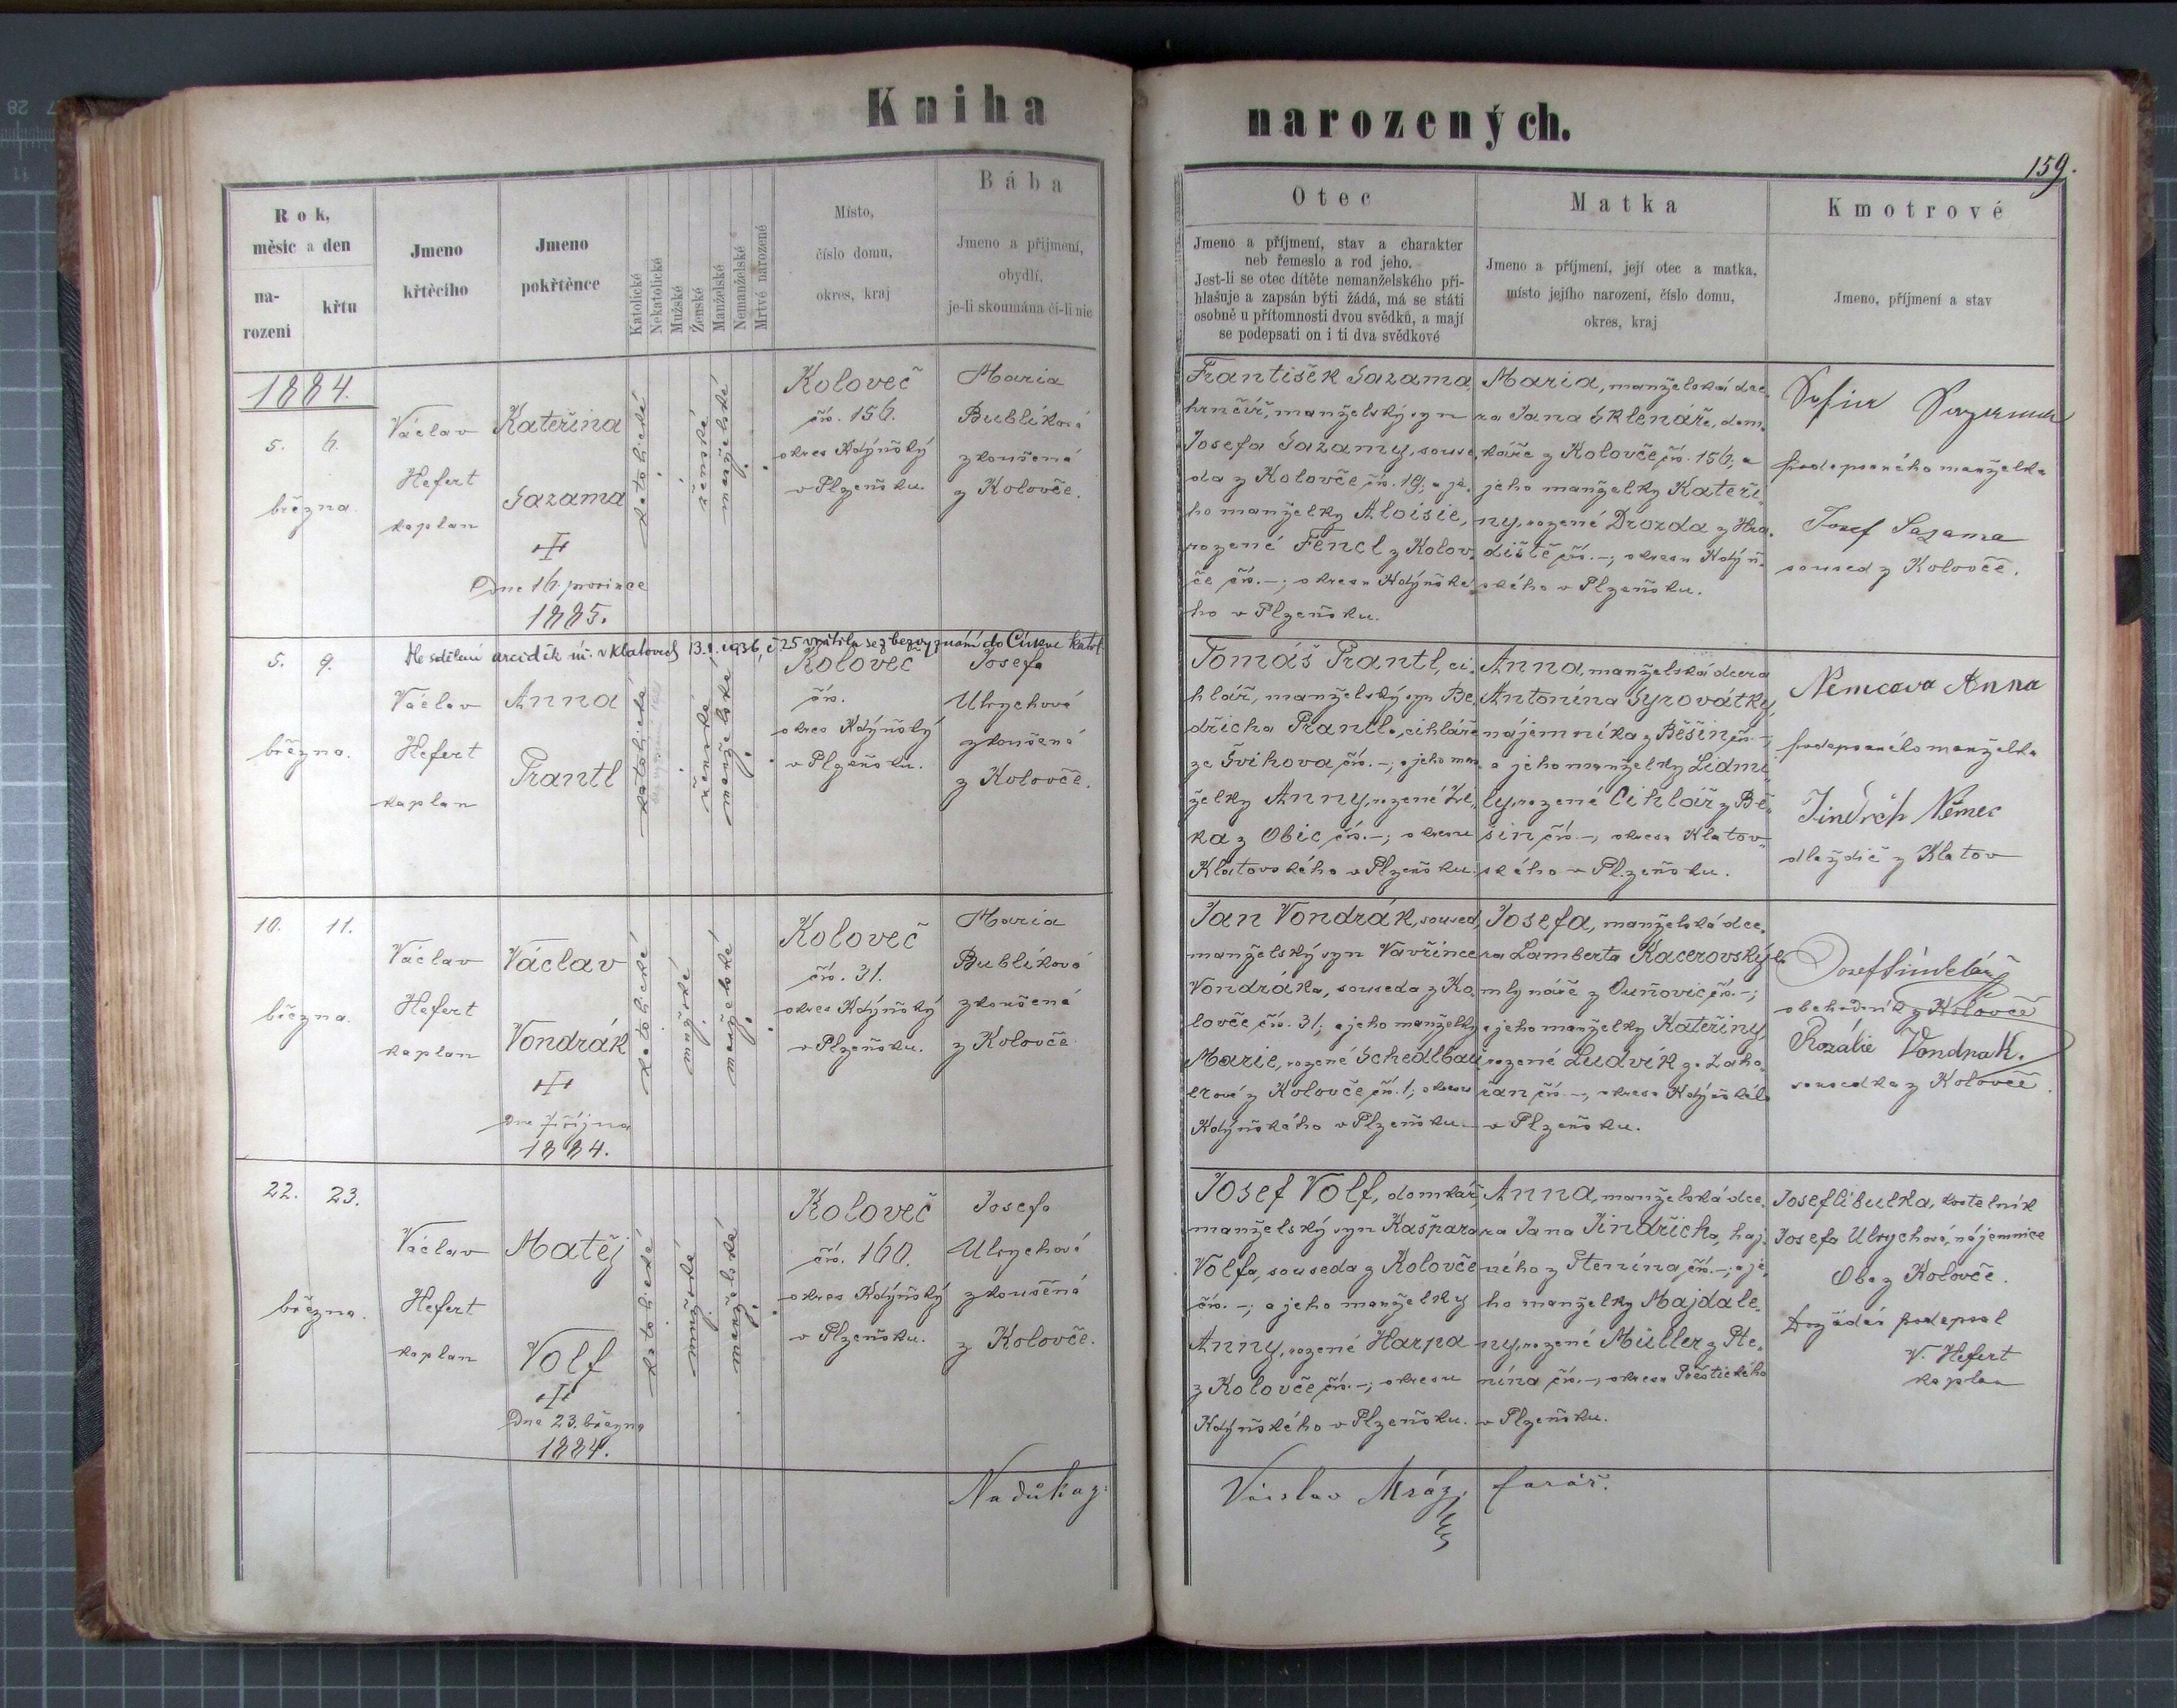 Kniha
narozených.
159.
Rok,
měsíc a den
na-
rození
křtu
Jmeno
křtěcího
Jmeno
pokřtěnce
Katolické
Nekatolické
Mužské
Ženské
Manželské
Nemanželské
Mrtvě narozené
Místo,
číslo domu,
okres, kraj
Bába
Jmeno a přijmení,
obydlí,
je-li skoumána či-li nic
Otec
Jmeno a příjmení, stav a charakter
neb řemeslo a rod jeho.
Jest-li se otec dítěte nemanželského při-
hlašuje a zapsán býti žádá, má se státi
osobně u přítomnosti dvou svědků, a mají
se podepsati on i ti dva svědkové
Matka
Jmeno a příjmení, její otec a matka,
místo jejího narození, číslo domu,
okres, kraj
Kmotrové
Jmeno, příjmení a stav
1884.
5. 6.
března.
Václav
Hefert
kaplan
Kateřina
Sazama
Dne 16. prosince
1885.
katolické
ženské
manželské
Koloveč
čís. 156.
okres Kdýňský
v Plzeňsku.
Maria
Bublíková
zkoušená
z Kolovče.
František Sazama,
hrnčíř, manželský syn
Josefa Sazamy, souse-
da z Kolovče čís. 19; a je-
ho manželky Aloisie,
rozené Fencl z Kolov-
če čís. –; okresu Kdýňské-
ho v Plzeňsku.
Maria, manželská dce-
ra Jana Sklenáře, dom-
káře z Kolovče čís. 156; a
jeho manželky Kateři-
ny, rozené Drozda z Hra-
diště čís. –; okresu Kdýň-
ského v Plzeňsku.
Sofie Sazamová
podepsaného manželka
Josef Sazama
soused z Kolovče.
5. 9.
března.
Dle sdělení arciděk. úř. v Klatovech 13.1.1936, č 25 vrátila se z bezvyznání do Církve katol.
Václav
Hefert
kaplan
Anna
Prantl
katolické
ženské
manželské
Koloveč
čís.
okres Kdýňský
v Plzeňsku.
Josefa
Ulrychová
zkoušená
z Kolovče.
Tomáš Prantl, ci-
hlář, manželský syn Be-
dřicha Prantla, cihláře
ze Švihova čís. –; a jeho man-
želky Anny, rozené
ka z Obic čís. –; okresu
Klatovského v Plzeňsku.
Anna, manželská dcera
Antonína Syrovátky,
nájemníka z Běšin čís. –;
a jeho manželky Lidmi-
ly, rozené Cihlář z Bě-
šin čís. –, okresu Klatov-
ského v Plzeňsku.
Němcova Anna
podepsaného manželka
Jindřch Němec
dlaždič z Klatov
10. 11.
března.
Václav
Hefert
kaplan
Václav
Vondrák
Dne 7. října
1884.
katolické
mužské
manželské
Koloveč
čís. 31.
okres Kdýňský
v Plzeňsku.
Maria
Bublíková
zkoušená
z Kolovče
Jan Vondrák, soused,
manželský syn Vavřince
Vondráka, souseda z Ko-
lovče čís. 31; a jeho manželky
Marie, rozené Schedlbau-
erové z Kolovče čís. 1; okresu
Kdýňského v Plzeňsku.
Josefa, manželská dce-
ra Lamberta Kacerovskýho
mlynáře z Ouňovic čís. –;
a jeho manželky Kateřiny,
rozené Ludvík z Zaho-
řan čís. –, okresu Kdýňského
v Plzeňsku.
Josef Šindelář
obchodník z Kolovče
Rozálie Vondrak.
sousedka z Kolovče.
22. 23.
března.
Václav
Hefert
kaplan
Matěj
Volf
Dne 23. března
1884.
katolické
mužské
manželské
Koloveč
čís. 160.
okres Kdýňský
v Plzeňsku.
Josefa
Ulrychová
zkoušená
z Kolovče.
Josef Volf, domkář,
manželský syn Kašpara
Volfa, souseda z Kolovče
čís. –; a jeho manželky
Anny, rozené Harpa
z Kolovče čís. –; okresu
Kdýňského v Plzeňsku.
Anna, manželská dce-
ra Jana Jindřicha, haj-
ného z Ptenína čís. –; a je-
ho manželky Majdale-
ny, rozené Müller z Pte-
nína čís. –, okresu Přeštického
v Plzeňsku.
Josef Cibulka, kostelník
Josefa Ulrychová, nájemnice
Oba z Kolovče.
Dožádán podepsal
V. Hefert
kaplan
Na důkaz:
Václav Mráz, farář.